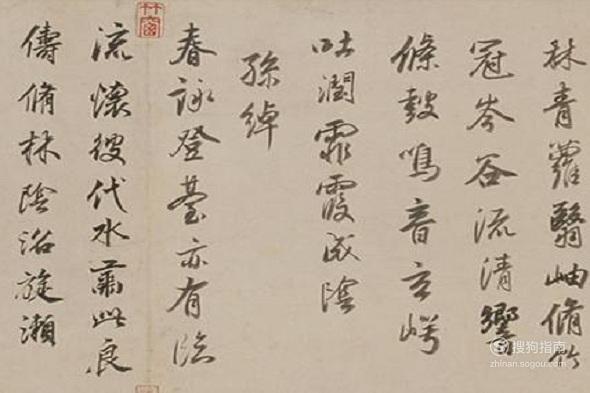 林青蘿翳岫脩竹
冠岑谷流清響
條鼓鳴音玄崿
吐潤霏霞成陰
孫綽
春詠登臺亦有臨
流懷彼代水肅此良
儔脩林陰沼旋瀨
搜狗指南
zhinan.sogou.com